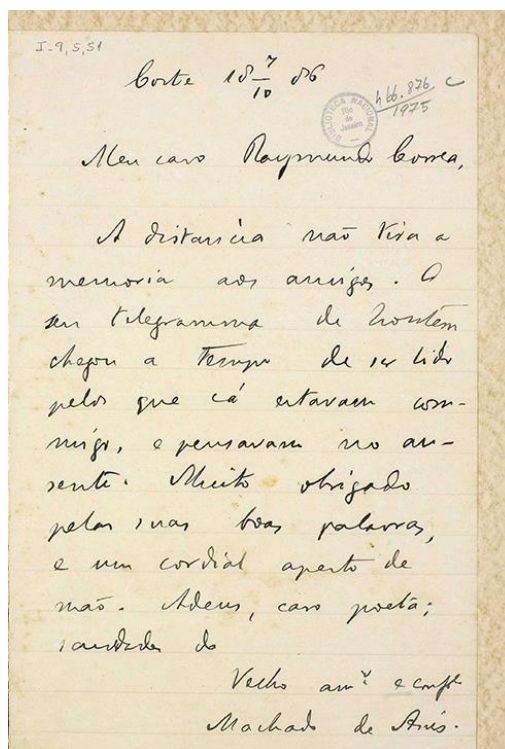 I-9,5,51
Corte 18 7/10 86
466.876 C
1975
BIBLIOTECA NACIONAL
Rio de Janeiro
Meu caro Raymundo Correa,
A distancia não tira a
memoria aos amigos. O
seu telegramma de hontem
chegou a tempo de ser lido
pelos que cá estavam com-
migo, e pensavam no au-
sente. Muito obrigado
pelas suas boas palavras,
e um cordial aperto de
mão. Adeus, caro poeta;
saudades do
Velho amº e confe
Machado de Assis.